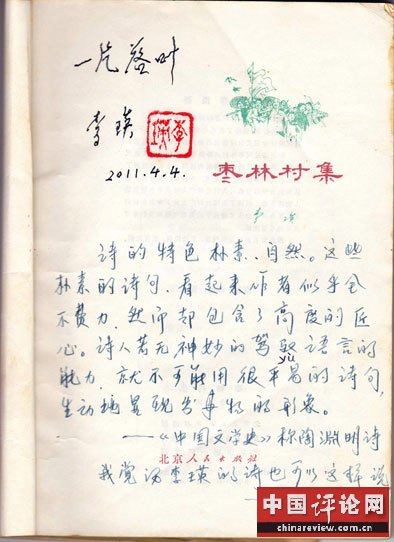 一片落叶
李瑛
李瑛
2011.4.4.
枣林村集
李瑛
诗的特色朴素、自然。这些
朴素的诗句、看起来作者似乎全
不费力,然而却包含了高度的匠
心。诗人若无神妙的驾驭语言的
yù
能力,就不可能用很平易的诗句,
生动地呈现出事物的形象。
——《中国文学史》称陶渊明诗
北京人民出版社
我觉得李瑛的诗也可以这样说
中国评论网
chinareview.com.cn